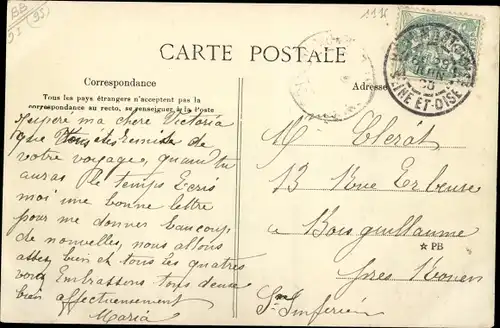 BB
53
(95)
1116
CARTE POSTALE
SEINE ET OISE
Correspondance
Adresse
Tous les pays étrangers n'acceptent pas la
correspondance au recto, se renseigner à la Poste
J'espère ma chère Victoria
que remise de
votre voyage, quand tu
auras le temps Ecris
moi une bonne lettre
pour me donner beaucoup
de nouvelles, nous allons
assez bien et tous les quatres
vous Embrassons tous deux
bien affectueusement
Maria
M Clérat
13 Rue Erbeuse
a Boisguillaume
PB
près Rouen
Sne Inférieure